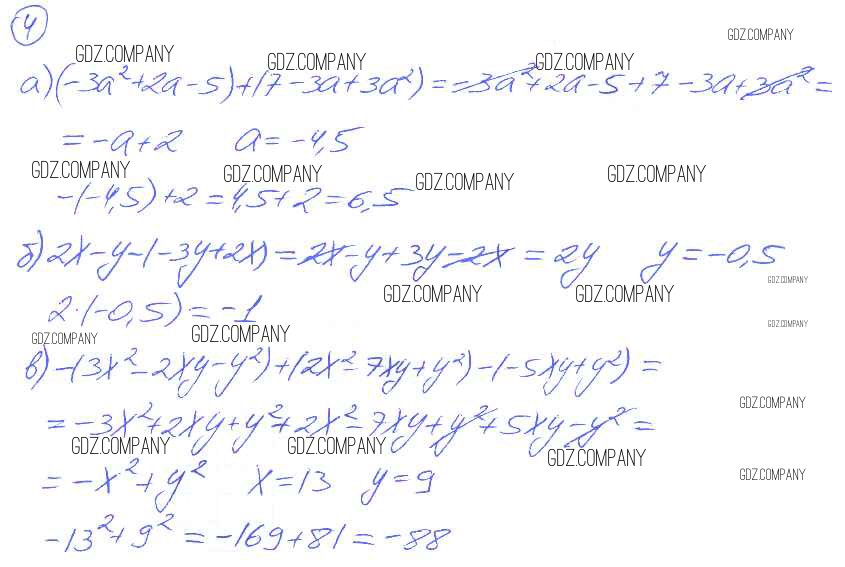 4
GDZ.COMPANY GDZ.COMPANY GDZ.COMPANY GDZ.COMPANY
а) (-3a²+2a-5)+(7-3a+3a²)=-3a²+2a-5+7-3a+3a²=
=-a+2 a=-4,5
GDZ.COMPANY GDZ.COMPANY GDZ.COMPANY GDZ.COMPANY
-(-4,5)+2=4,5+2=6,5
б) 2x-y-(-3y+2x)=2x-y+3y-2x=2y y=-0,5
GDZ.COMPANY GDZ.COMPANY GDZ.COMPANY
2·(-0,5)=-1
GDZ.COMPANY GDZ.COMPANY GDZ.COMPANY
в) -(3x²-2xy-y²)+(2x²-7xy+y²)-(-5xy+y²)=
GDZ.COMPANY
=-3x²+2xy+y²+2x²-7xy+y²+5xy-y²=
GDZ.COMPANY GDZ.COMPANY GDZ.COMPANY GDZ.COMPANY
=-x²+y² x=13 y=9
-13²+9²=-169+81=-88